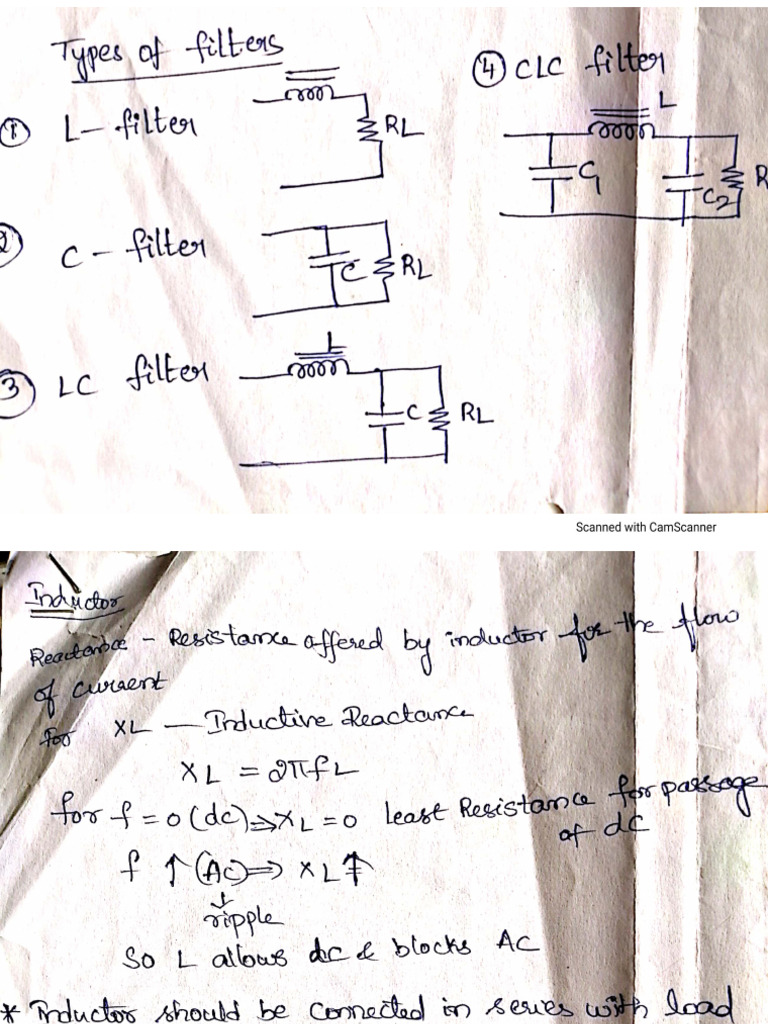 Types of filters
① L- filter
RL
② C - filter
C RL
③ LC filter
L
C RL
④ CLC filter
L
C1
C2 R
Scanned with CamScanner
Inductor
Reactance - Resistance offered by inductor for the flow
of current
for XL — Inductive Reactance
XL = 2πfL
for f = 0 (dc) ⇒ XL = 0 Least Resistance for passage
of dc
f ↑ (AC) ⇒ XL ↑
↓
ripple
So L allows dc & blocks AC
* Inductor should be connected in series with load